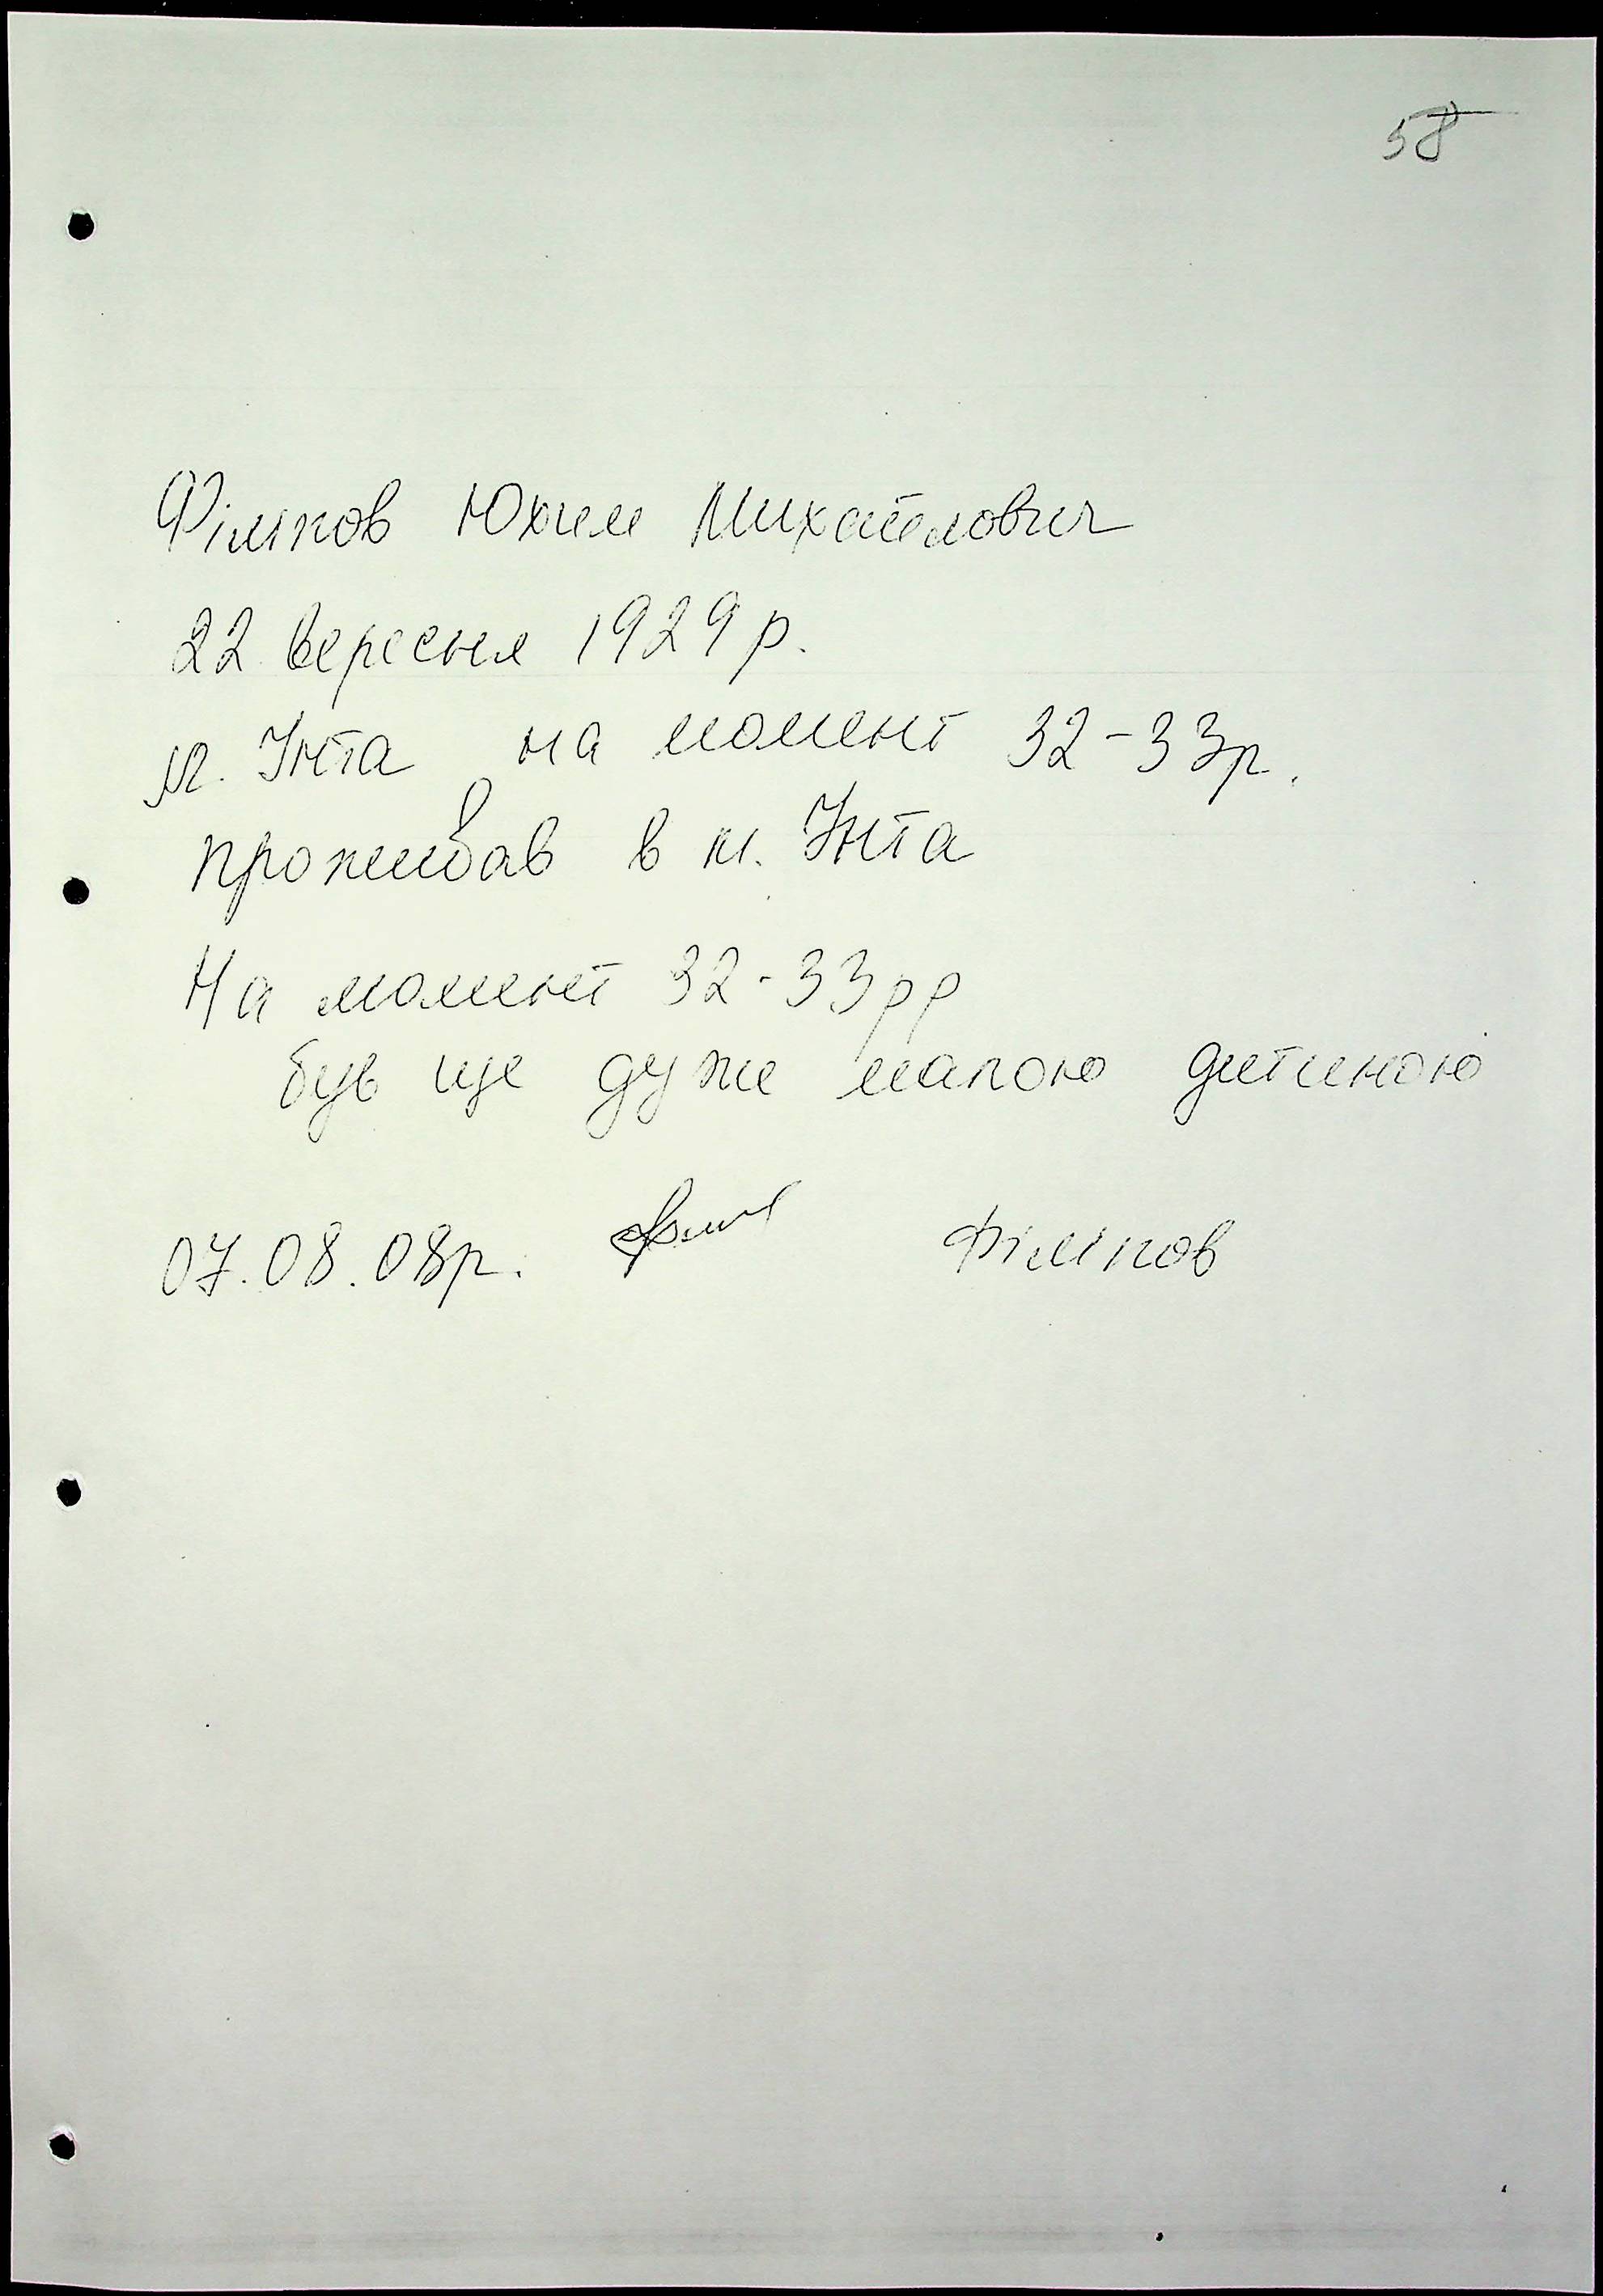 58
Філіпов Юхим Михайлович
22 вересня 1929 р.
м. Інта на момент 32-33р.
проживав в м. Інта
На момент 32-33рр
був ще дуже малою дитиною
07.08.08р. Філіпов